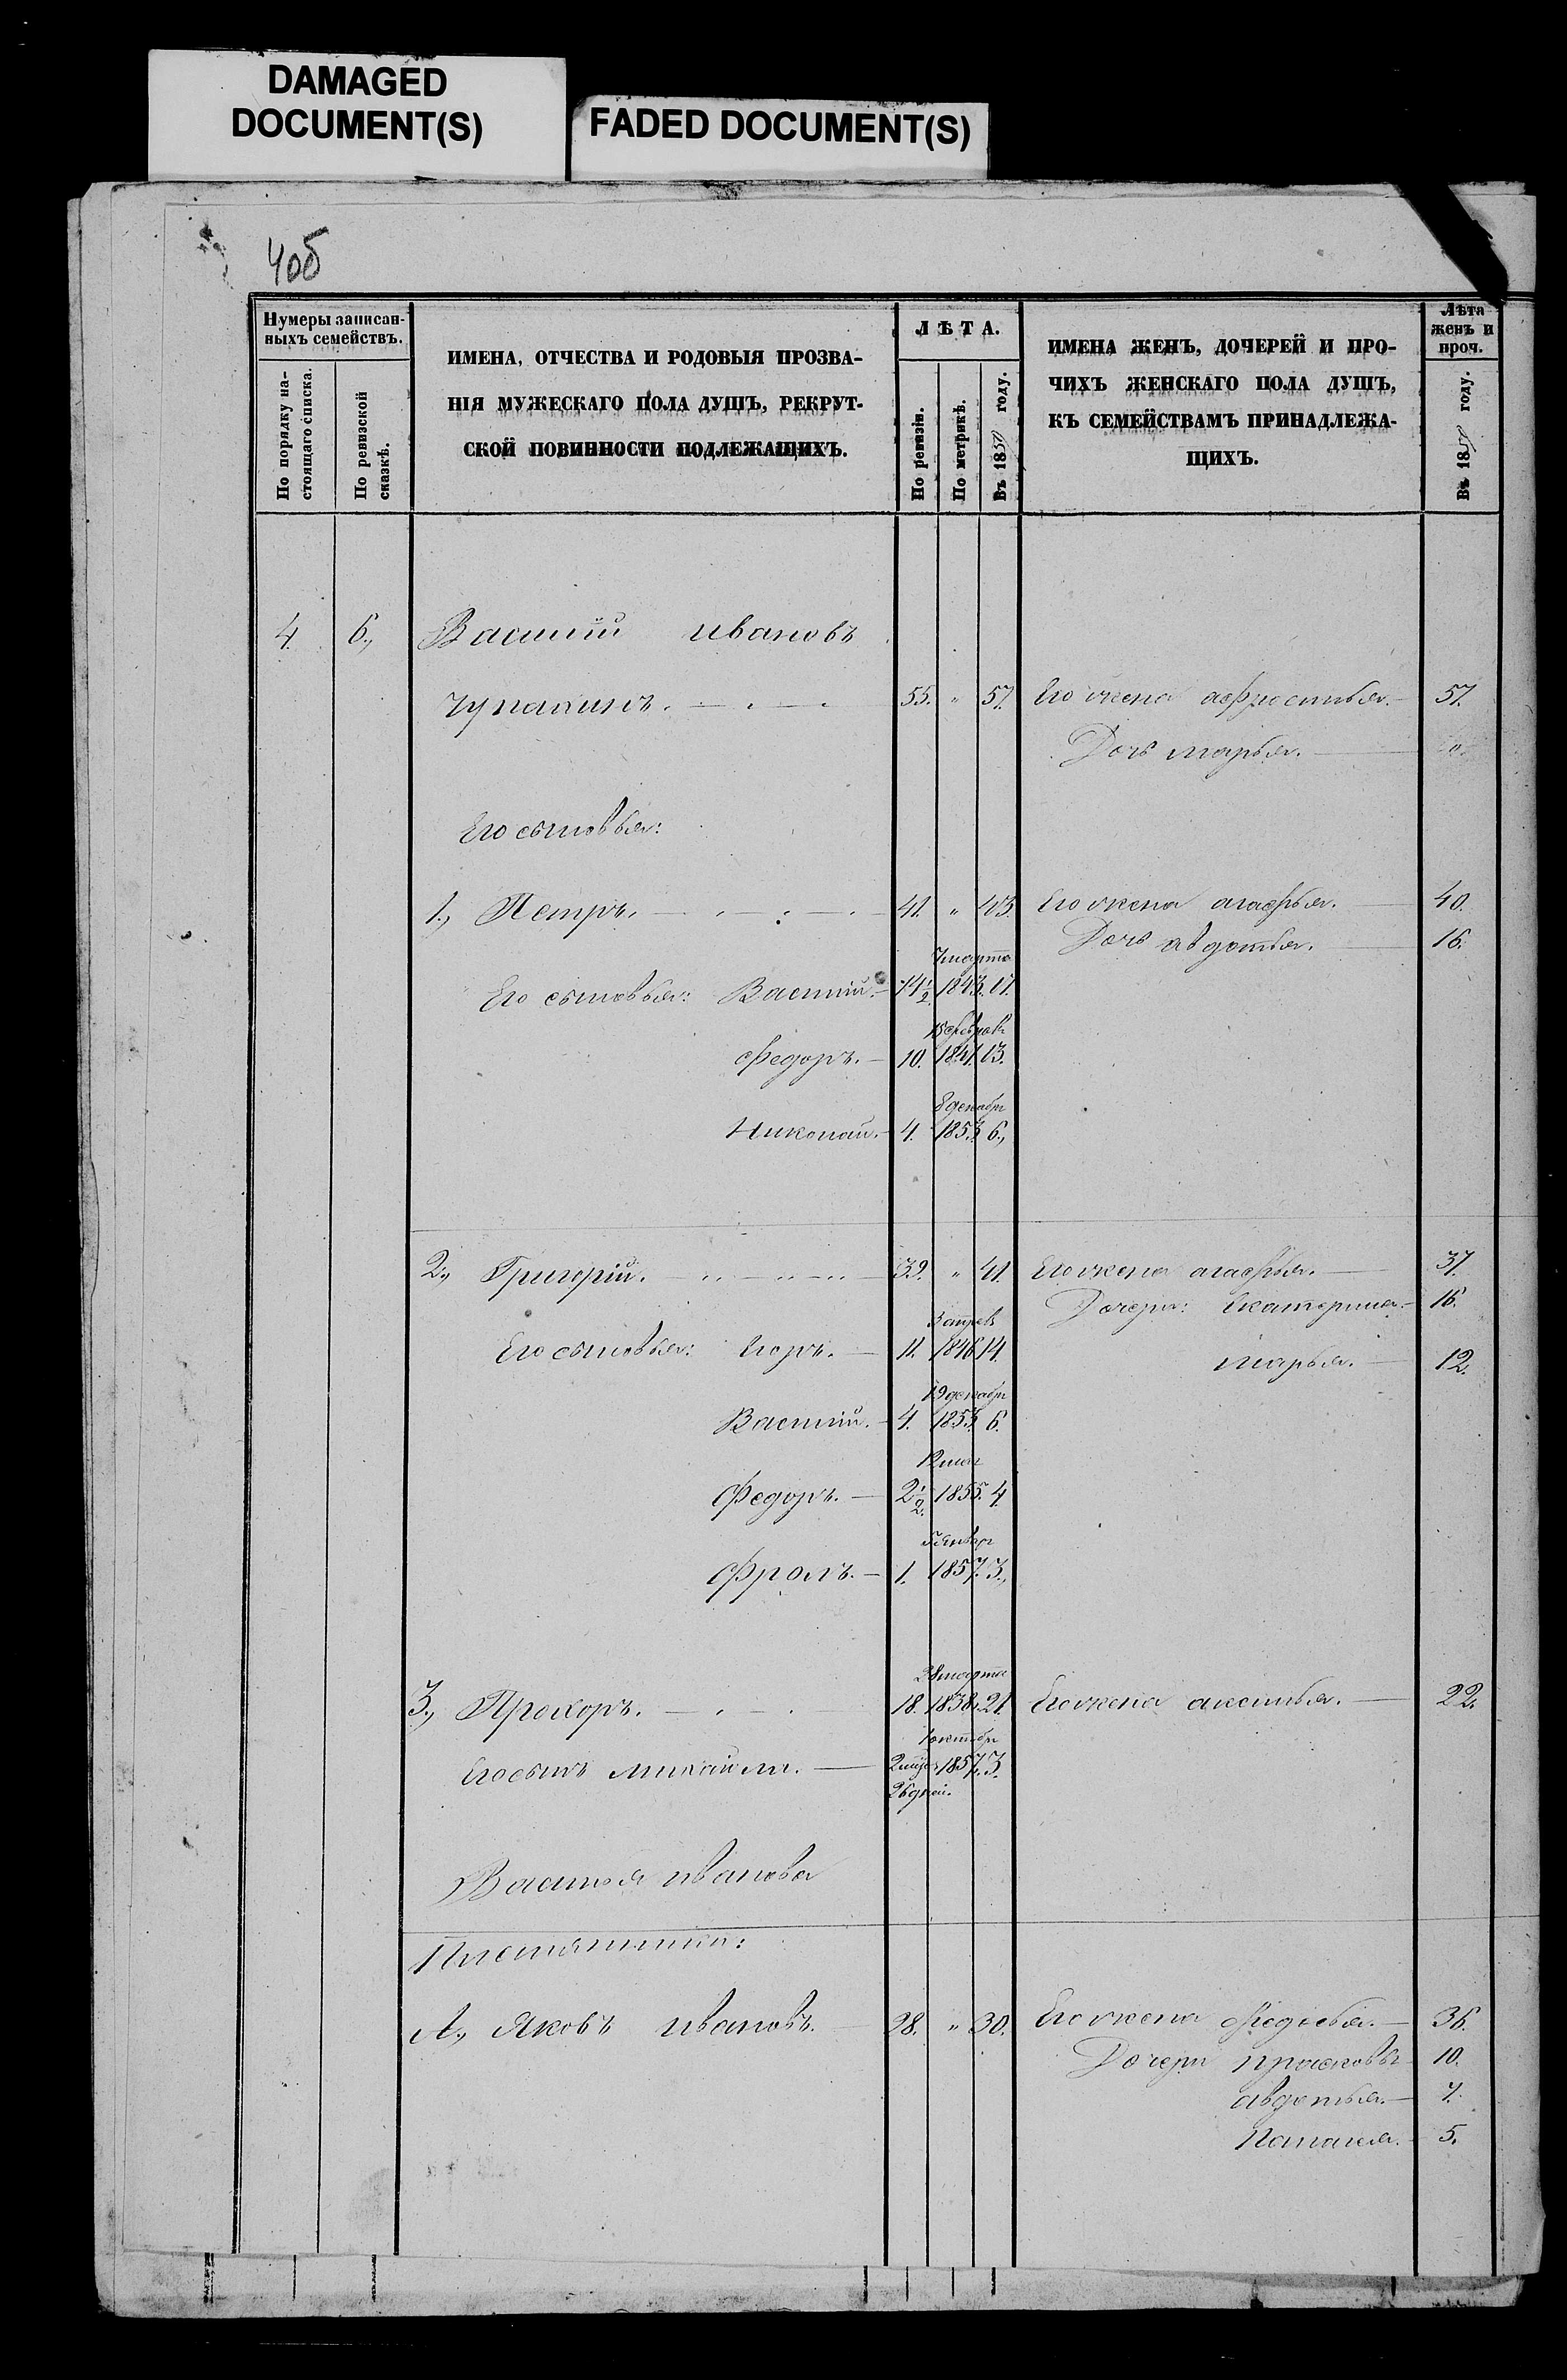 DAMAGED
DOCUMENT(S)
FADED DOCUMENT(S)
4об
Нумеры записан-
ныхъ семействъ.
По порядку на-
стоящаго списка.
По ревизской
сказкѣ.
ИМЕНА, ОТЧЕСТВА И РОДОВЫЯ ПРОЗВА-
НІЯ МУЖЕСКАГО ПОЛА ДУШЪ, РЕКРУТ-
СКОЙ ПОВИННОСТИ ПОДЛЕЖАЩИХЪ.
ЛѢТА.
По ревизіи.
По метрикѣ.
Въ 18 году.
ИМЕНА ЖЕНЪ, ДОЧЕРЕЙ И ПРО-
ЧИХЪ ЖЕНСКАГО ПОЛА ДУШЪ,
КЪ СЕМЕЙСТВАМЪ ПРИНАДЛЕЖА-
ЩИХЪ.
Лѣта
женъ и
проч.
Въ 18 году.
4. 6., Василій Ивановъ
55. " 57. Его жена 57.
Дочь Марья. — "
Его сыновья:
1., Петръ. — 41. " 43 Его жена Агафья. — 40.
Дочь Авдотья. — 16.
7 марта
Его сыновья: Василій. — 14½ 1843. 17.
Федоръ. — 10. 1847. 13.
8 декабр
Николай. — 4. 1853 6.,
2., Григорій. — 39. " 41. Его жена Агафья. — 37.
Дочери: Екатерина. — 16.
Его сыновья: Егоръ. — 11. 1846 14. Марья. — 12.
19 декабр
Василій. — 4. 1853 6.
12 мая
Федоръ. — 2½. 1855. 4
5 Январ
Фролъ. — 1. 1857. 3.,
28 марта
3., Прохоръ. — 18. 1838. 21. Его жена Аксинья. — 22.
1 октябр
Его сынъ Михаилъ. — 2 1857. 3.
26 дней.
Василья Иванова
Племянники:
Яковъ Ивановъ. — 28. " 30. Его жена Федосья. — 36.
Дочери Прасковья 10.
Авдотья. — 7.
Наталья. 5.